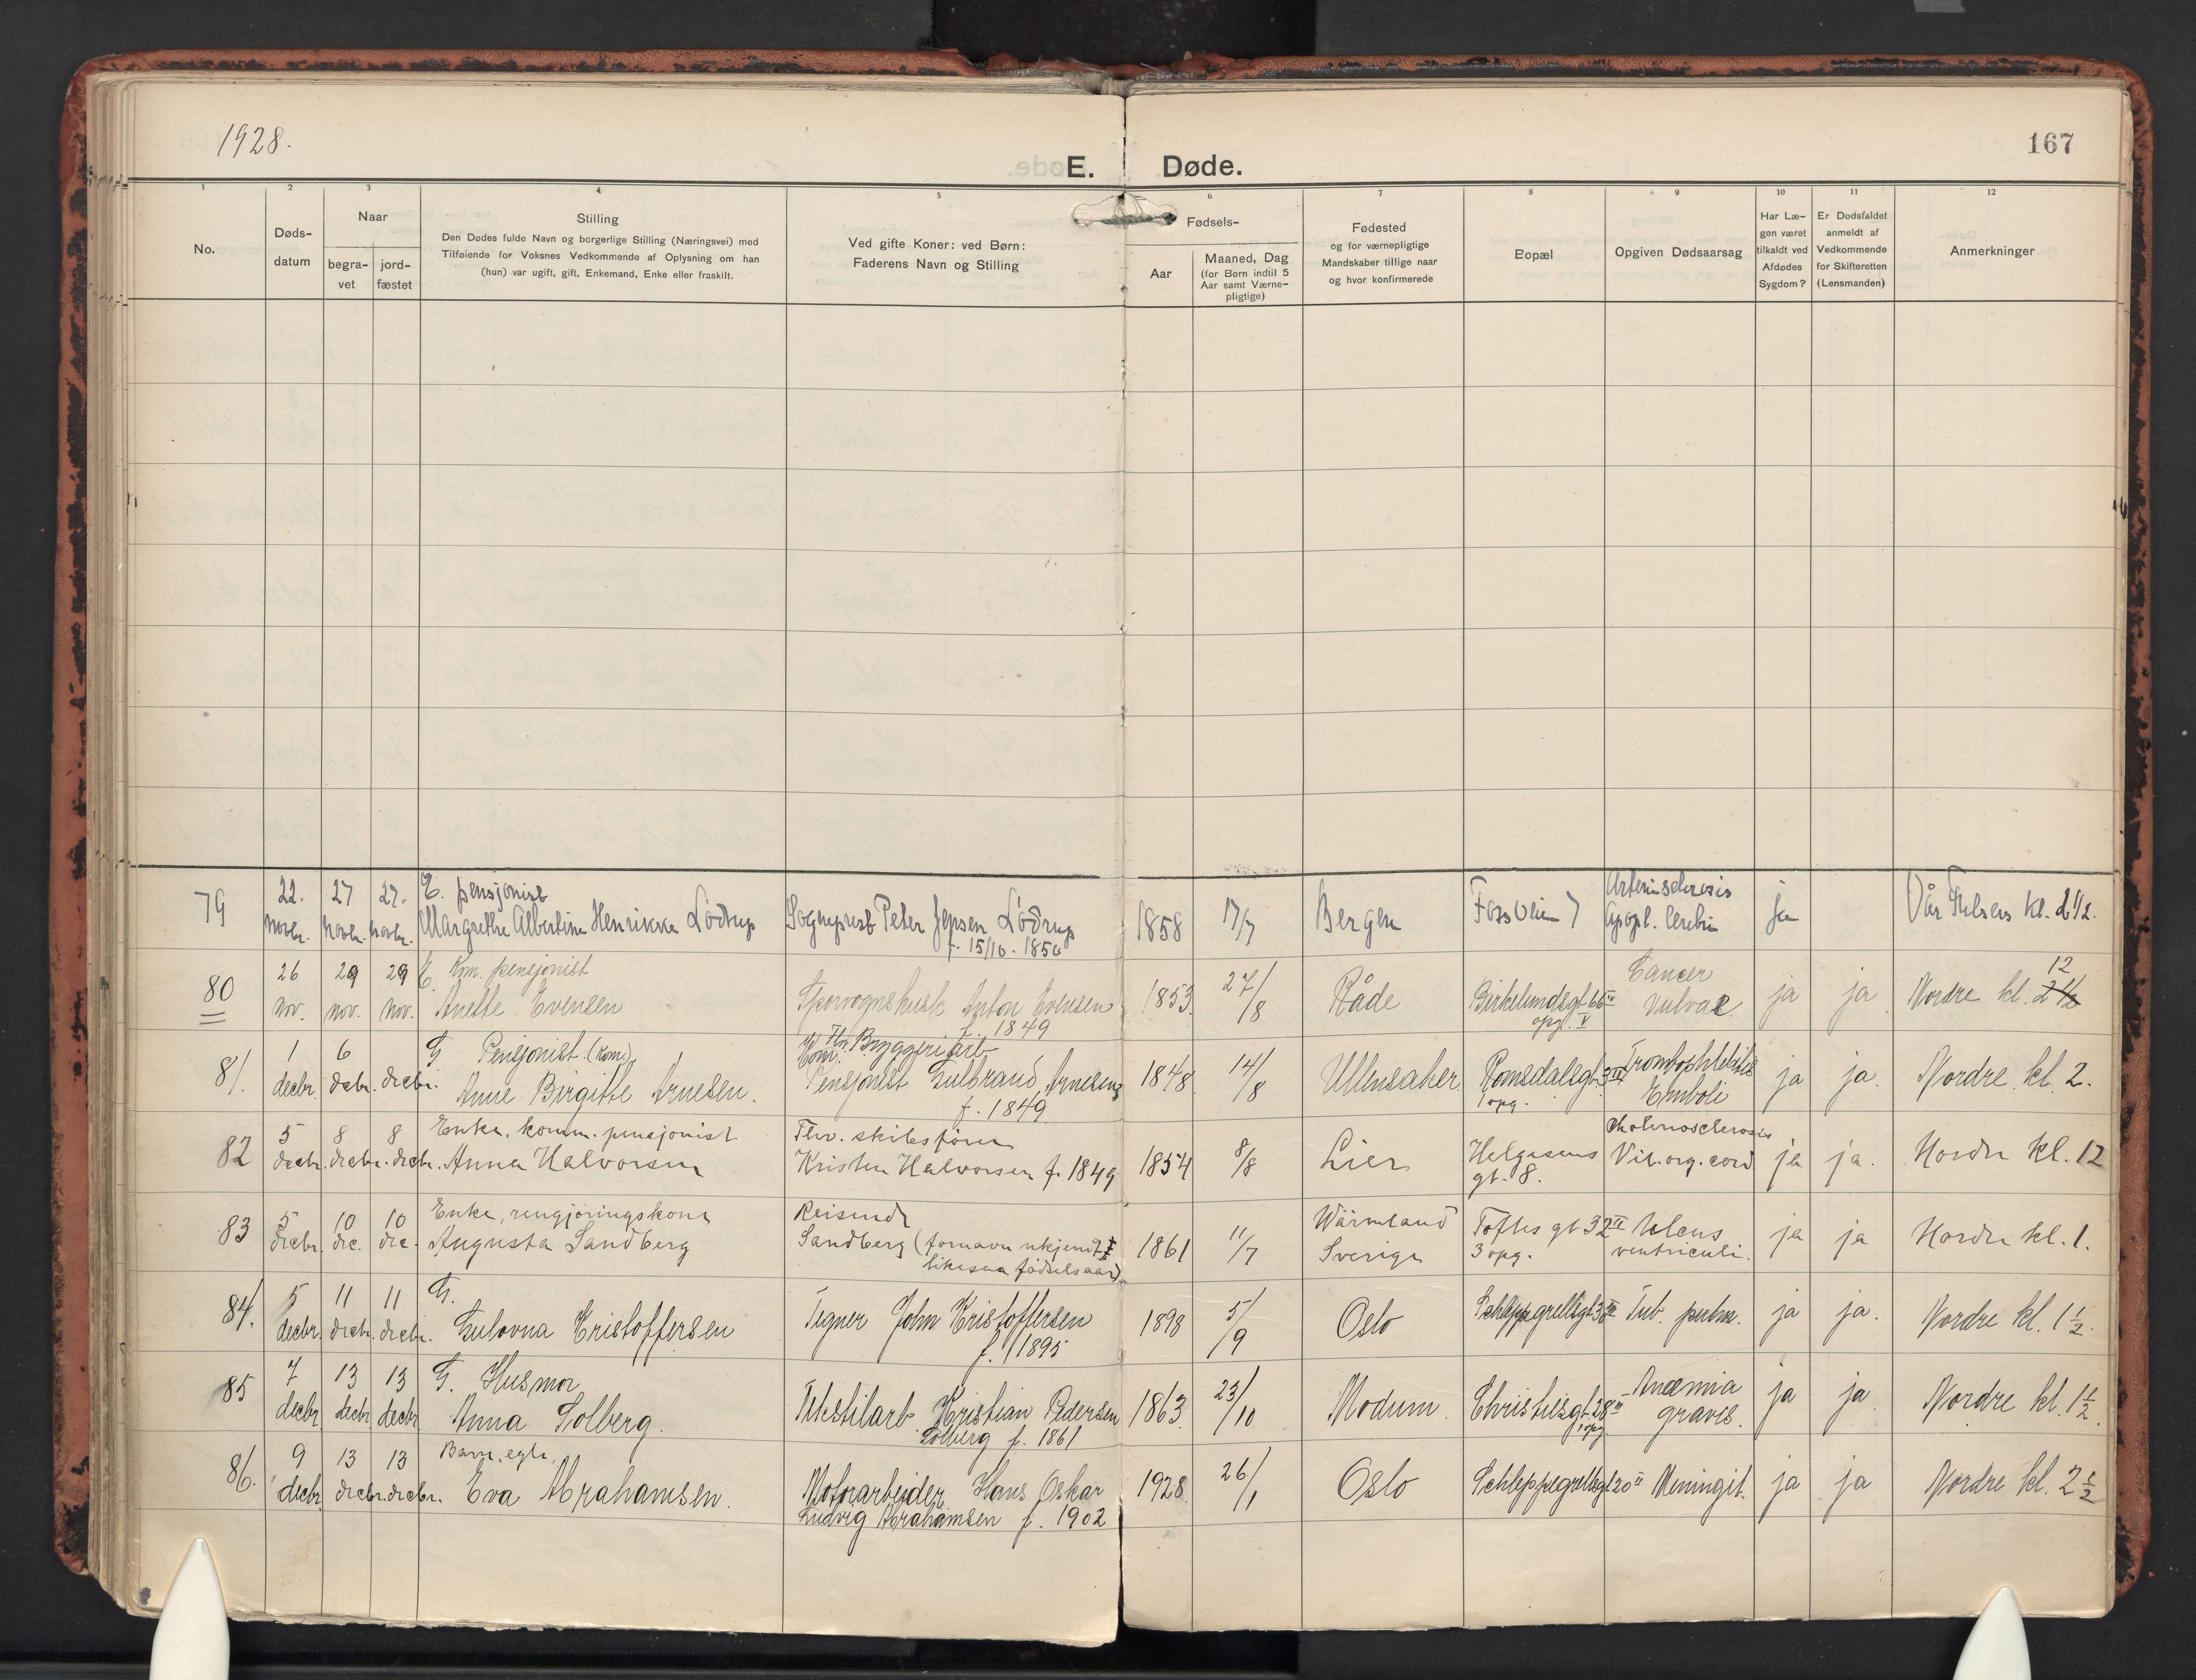 1928.
167
E. Døde.
1 2 3 4 5 6 7 8 9 10 11 12
No.
Døds-
datum
Naar
begra-
vet
jord-
fæstet
Stilling
Den Dødes fulde Navn og borgerlige Stilling (Næringsvei) med
Tilføiende for Voksnes Vedkommende af Oplysning om han
(hun) var ugift, gift, Enkemand, Enke eller fraskilt.
Ved gifte Koner: ved Børn:
Faderens Navn og Stilling
Fødsels-
Aar
Maaned, Dag
(for Børn indtil 5
Aar samt Værne-
pligtige)
Fødested
og for værnepligtige
Mandskaber tillige naar
og hvor konfirmerede
Bopæl
Opgiven Dødsaarsag
Har Læ-
gen været
tilkaldt ved
Afdødes
Sygdom?
Er Dødsfaldet
anmeldt af
Vedkommende
for Skifteretten
(Lensmanden)
Anmerkninger
79 22. novbr. 27 novbr. 27. novbr. E. pensjonist
Margrethe Albertine Henrikke Lødrup
Sogneprest Peter Jensen Lødrup
f. 15/10. 1850
1858 17/7 Bergen
Arteriosclerosis
apopl. cerebri
ja Vår Frelsers kl. 2 1/2.
80 26 nov. 29 nov. 29 nov. E. Kom. pensjonist
Anette Evensen
Sporvognskusk Anton Evensen
f. 1849
1853. 27/8 Råde
Birkelundsgt. 6 IV
opg. V
Cancer
vulvae
ja ja Nordre kl. 12 2 1/2
81. 1 decbr. 6 decbr. decbr. G Pensjonist (kom.)
Anne Birgitte Arnesen.
Bryggeriarb
Kom.
Pensjonist Gulbrand Arnesen
f. 1849
1848 14/8 Ullensaker
Romsdalsgt. 3 III
1 opg.
Trombophlebitis
Emboli
ja ja. Nordre kl. 2.
82 5 decbr. 8 decbr. 8 decbr. Enke, komm. pensjonist
Anna Halvorsen
Fhv. skibsfører
Kristen Halvorsen f. 1849
1854 8/8 Lier
Helgesens
gt. 8.
Vit. org. cord
ja ja. Nordre kl. 12
83 5 decbr. 10 dec. 10 dec. Enke, rengjøringskone
Augusta Sandberg
Reisende
Sandberg (fornavn ukjendt
likesaa fødselsaar)
1861 11/7 Wärmland
Sverige
Toftes gt 32 II
3 opg.
Ulcus
ventriculi.
ja ja Nordre kl. 1.
84. 5 decbr. 11 decbr. 11 decbr. G.
Gulovna Kristoffersen
Tegner John Kristoffersen
f. 1895
1898 5/9 Oslo
Schleppegrellsgt. 3 III
Tub. pulm.
ja ja. Nordre kl. 1 1/2.
85 7 decbr. 13 decbr. 13 decbr. G. Husmor
Anna Solberg.
Tekstilarb. Kristian Pedersen
Solberg f. 1861
1863. 23/10 Modum.
Christiesgt. 28 III
1 opg
Anæmia
gravis.
ja ja Nordre kl. 1 1/2.
86. 9 decbr. 13 decbr. 13 decbr. Barn, egte.
Eva Abrahamsen.
Motorarbeider Hans Oskar
Ludvig Abrahamsen f. 1902
1928. 26/1 Oslo
Schleppegrellsgt 20 II
Meningit.
ja ja Nordre kl. 2 1/2